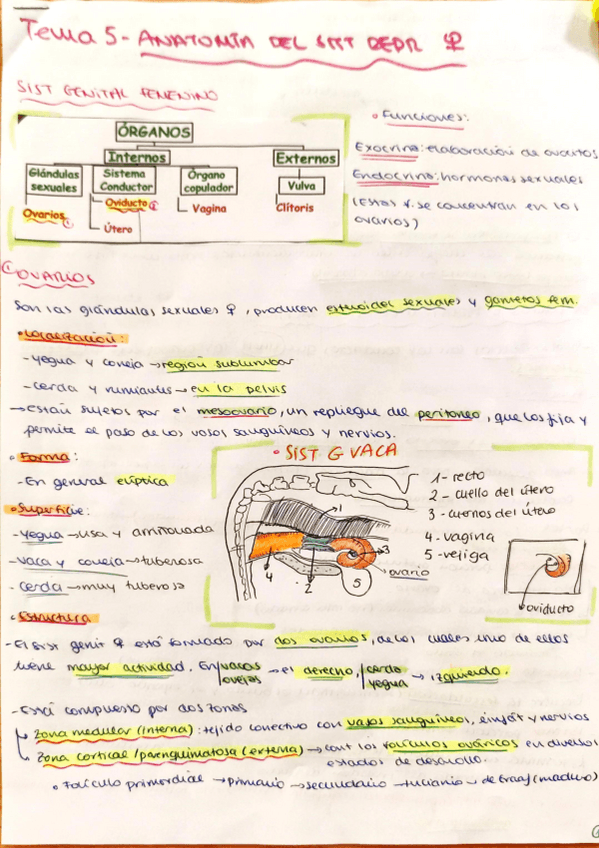 Tema 5 - ANATOMÍA DEL SIST REPR ♀
SIST GENITAL FEMENINO
ÓRGANOS
Internos
Externos
Glándulas sexuales
Sistema Conductor
Órgano copulador
Vulva
Ovarios 1
Oviducto 2
Vagina
Clítoris
Útero
• Funciones:
Exocrina: elaboración de ovocitos
Endocrina: hormonas sexuales
(Estas f. se concentran en los
ovarios)
1 OVARIOS
Son las glándulas sexuales ♀, producen esteroides sexuales y gametos fem.
• Localización:
- yegua y coneja → región sublumbar
- cerda y rumiantes → en la pelvis
→ Están sujetos por el mesoovario, un repliegue del peritoneo, que los fija y
permite el paso de los vasos sanguíneos y nervios.
• Forma:
- En general elíptica
• Superficie:
- yegua → lisa y arriñonada
- vaca y coneja → tuberosa
- cerda → muy tuberosa
• SIST G VACA
1 - recto
2 - cuello del útero
3 - cuernos del útero
4 - vagina
5 - vejiga
1
3
ovario
4
2
5
oviducto
• Estructura
- El sist genit ♀ está formado por dos ovarios, de los cuales uno de ellos
tiene mayor actividad. En vacas ovejas → el derecho, cerda yegua → izquierdo.
- Está compuesto por dos zonas
Zona medular (interna): tejido conectivo con vasos sanguíneos, linfát y nervios
Zona cortical / parenquimatosa (externa) → cont los folículos ováricos en diversos
estados de desarollo.
• Folículo primordial → primario → secundario → terciario → de Graaf (maduro)